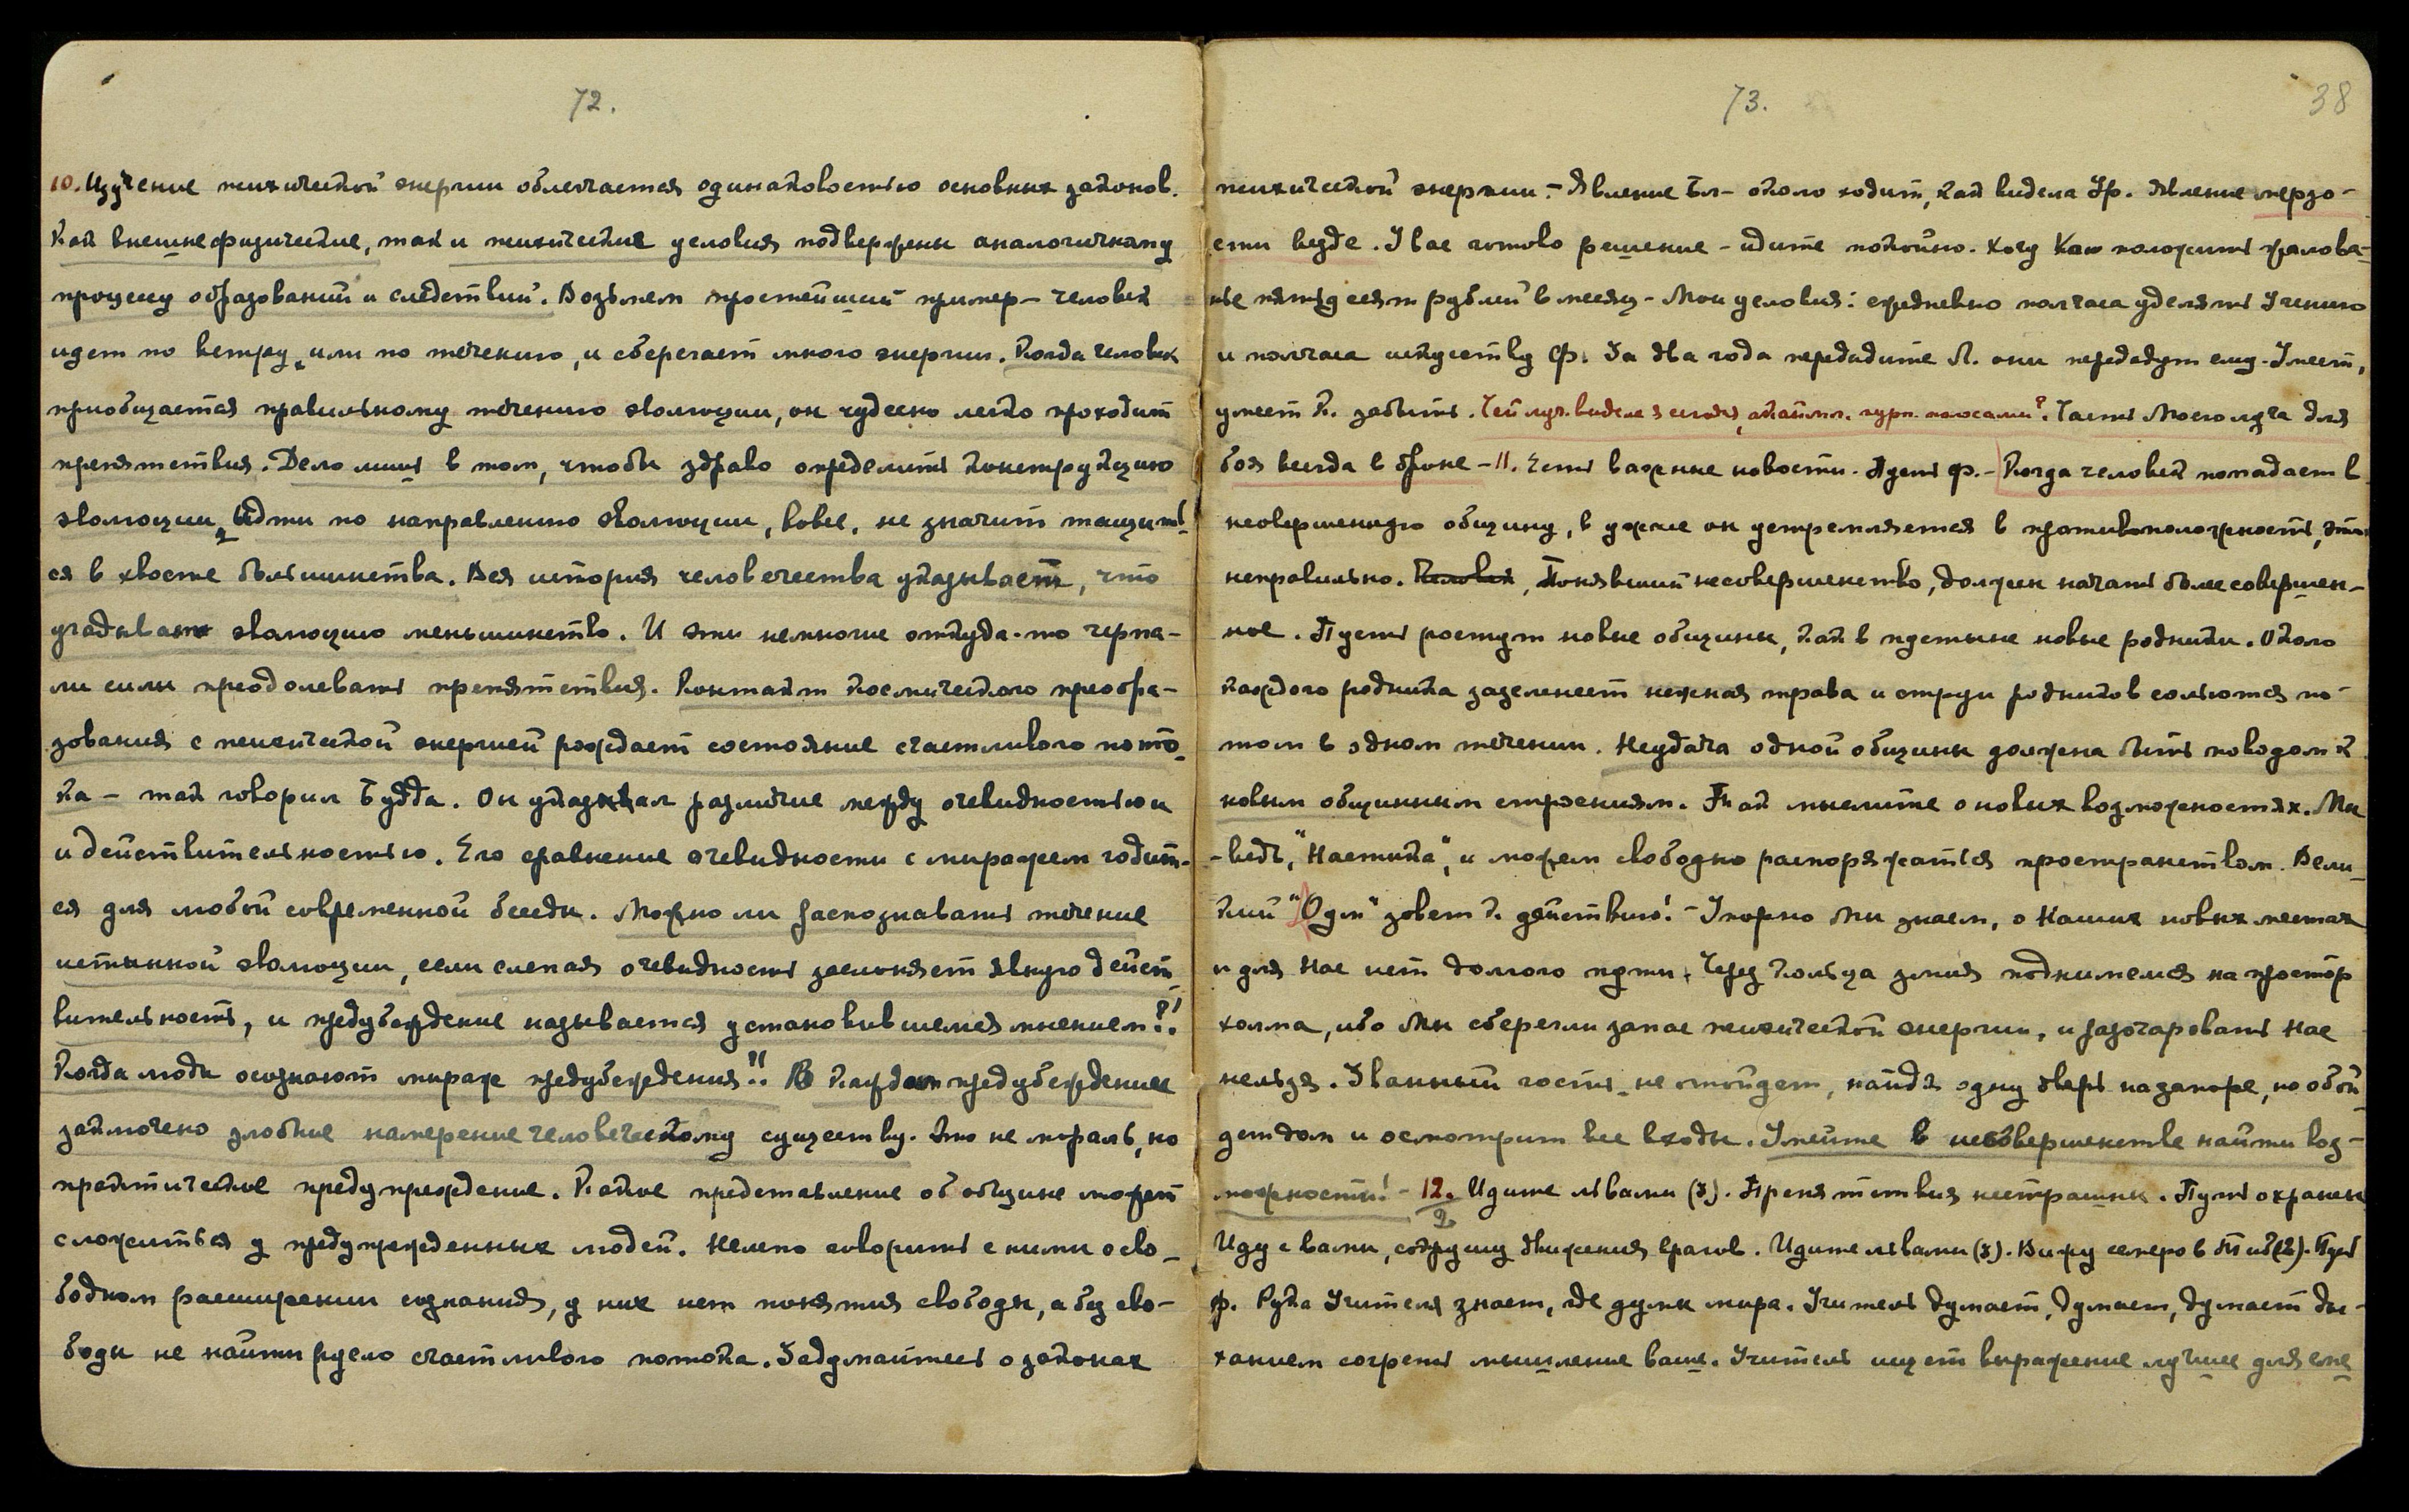 72.
10. Изучение психической энергии облегчается одинаковостью основных законов.
Как внешнефизические, так и психические условия подвержены аналогичному
процессу образований и следствий. Возьмем простейший пример – человек
идет по ветру, или по течению, и сберегает много энергии. Когда человек
приобщается правильному течению эволюции, он чудесно легко проходит
препятствия. Дело лишь в том, чтобы здраво определить конструкцию
эволюции, Идти по направлению эволюции, вовсе, не значит тащить-
ся в хвосте большинства. Вся история человечества указывает, что
угадывало эволюцию меньшинство. И эти немногие откуда-то черпа-
ли силы преодолевать препятствия. Контакт космического преобра-
зования с психической энергией рождает состояние счастливого пото-
ка – так говорил Будда. Он указывал различие между очевидностью и
и действительностью. Его сравнение очевидности с миражем годит-
ся для любой современной беседы. Можно ли распознавать течение
истинной эволюции, если слепая очевидность заслоняет явную дейст-
вительность, и предубеждение называется установившемся мнением?!
Когда люди осознают мираж предубеждения!! В каждом предубеждении
заключено злобное намерение человеческому существу. Это не мораль, но
практическое предупреждение. Какое представление об общине может
сложиться у предупрежденных людей. Нелепо говорить с ними о сво-
бодном расширении сознания, у них нет понятия свободы, а без сво-
боды не найти русло счастливого потока. Задумайтесь о законах
73.
38
психической энергии. – Явление Бл – около ходит, как видела Ур. Явление мерзо-
сти везде. У вас готово решение – идите покойно. Хочу положить жалова-
нье пятьдесят рублей в месяц – Мои условия: ежедневно полчаса уделять Учению
и полчаса искусству Ф. За два года передадите Л. они передадут ему. Умеет,
умеет К. забыть. Чей луч видела с пурп. полосами? Часть Моего луча для
боя всегда в броне – 11. Есть важные новости. Пусть Ф. – Когда человек попадает в
несовершенную общину, в ужасе он устремляется в противоположность, это
неправильно. Человек, Понявший несовершенство, должен начать более совершен-
ное. Пусть растут новые общины, как в пустыне новые родники. Около
каждого родника зазеленеет нежная трава и струи родников сольются по-
том в одном течении. Неудача одной общины должна быть поводом к
новым общинным строениям. Так мыслите о новых возможностях. Мы
– ведь, "Настика", и можем свободно распоряжаться пространством. Вели-
кий "Один" зовет к действию! – Упорно Мы знаем, о Наших новых местах
и для Нас нет долгого пути. Через кольца змия поднимемся на простор
холма, ибо Мы сберегли запас психической энергии, и разочаровать Нас
нельзя. Званный гость не отойдет, найдя одну дверь на запоре, но обой-
дет дом и осмотрит все входы. Умейте в несовершенстве найти воз-
можность! – 12. Идите львами (3). Препятствия нестрашны. Путь охранен
2
Иду с вами, сокрушу движения врагов. Идите львами (3). Вижу семеро в Тиб(2). Пусть
Ф. Рука Учителя знает, где думы мира. Учитель думает, думает, думает ды-
ханием согреть мышление ваше. Учитель ищет выражение лучшее для